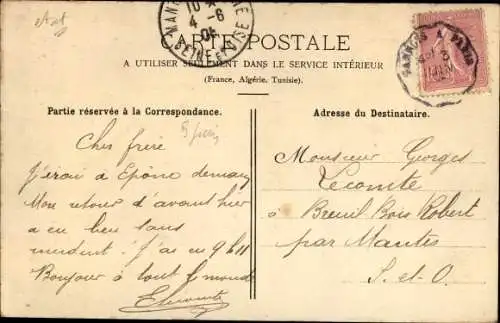 CARTE POSTALE
A UTILISER SEULEMENT DANS LE SERVICE INTÉRIEUR
(France, Algérie, Tunisie).
Partie réservée à la Correspondance.
Cher frère
J'irai à Epône demain
Mon retour d'avant hier
a eu lieu sans
incident. J'ai eu 9h11
Bonjour à tout le monde
ELecomte
Adresse du Destinataire.
Monsieur Georges
Lecomte
à Breuil Bois Robert
par Mantes
S.-et-O.
5 juin
10
4 -6
05
SEINE-ET-OISE
A PARIS
JUIN